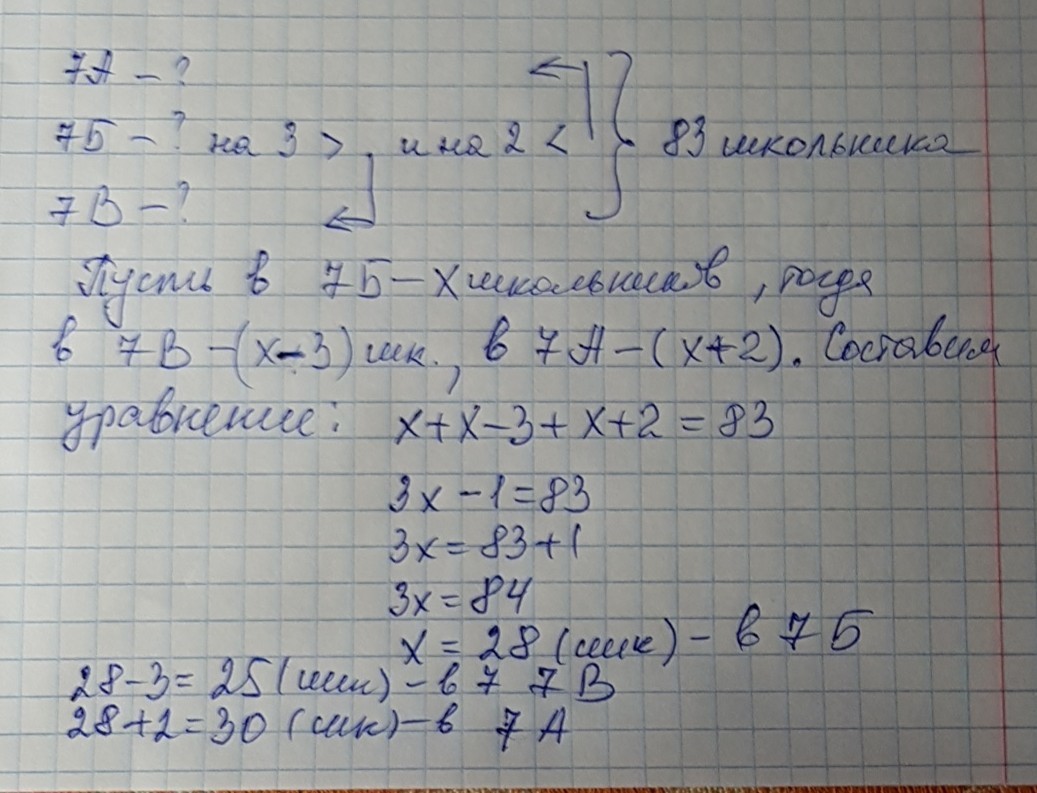 7А – ?
7Б – ? на 3 > и на 2 < 83 школьника
7В – ?
Пусть в 7Б – х школьников, тогда
в 7В – (х-3) шк., в 7А – (х+2). Составим
уравнение: х+х-3+х+2=83
3х-1=83
3х=83+1
3х=84
х=28 (шк) – в 7Б
28-3=25 (шк) – в 7 7В
28+2=30 (шк) – в 7А